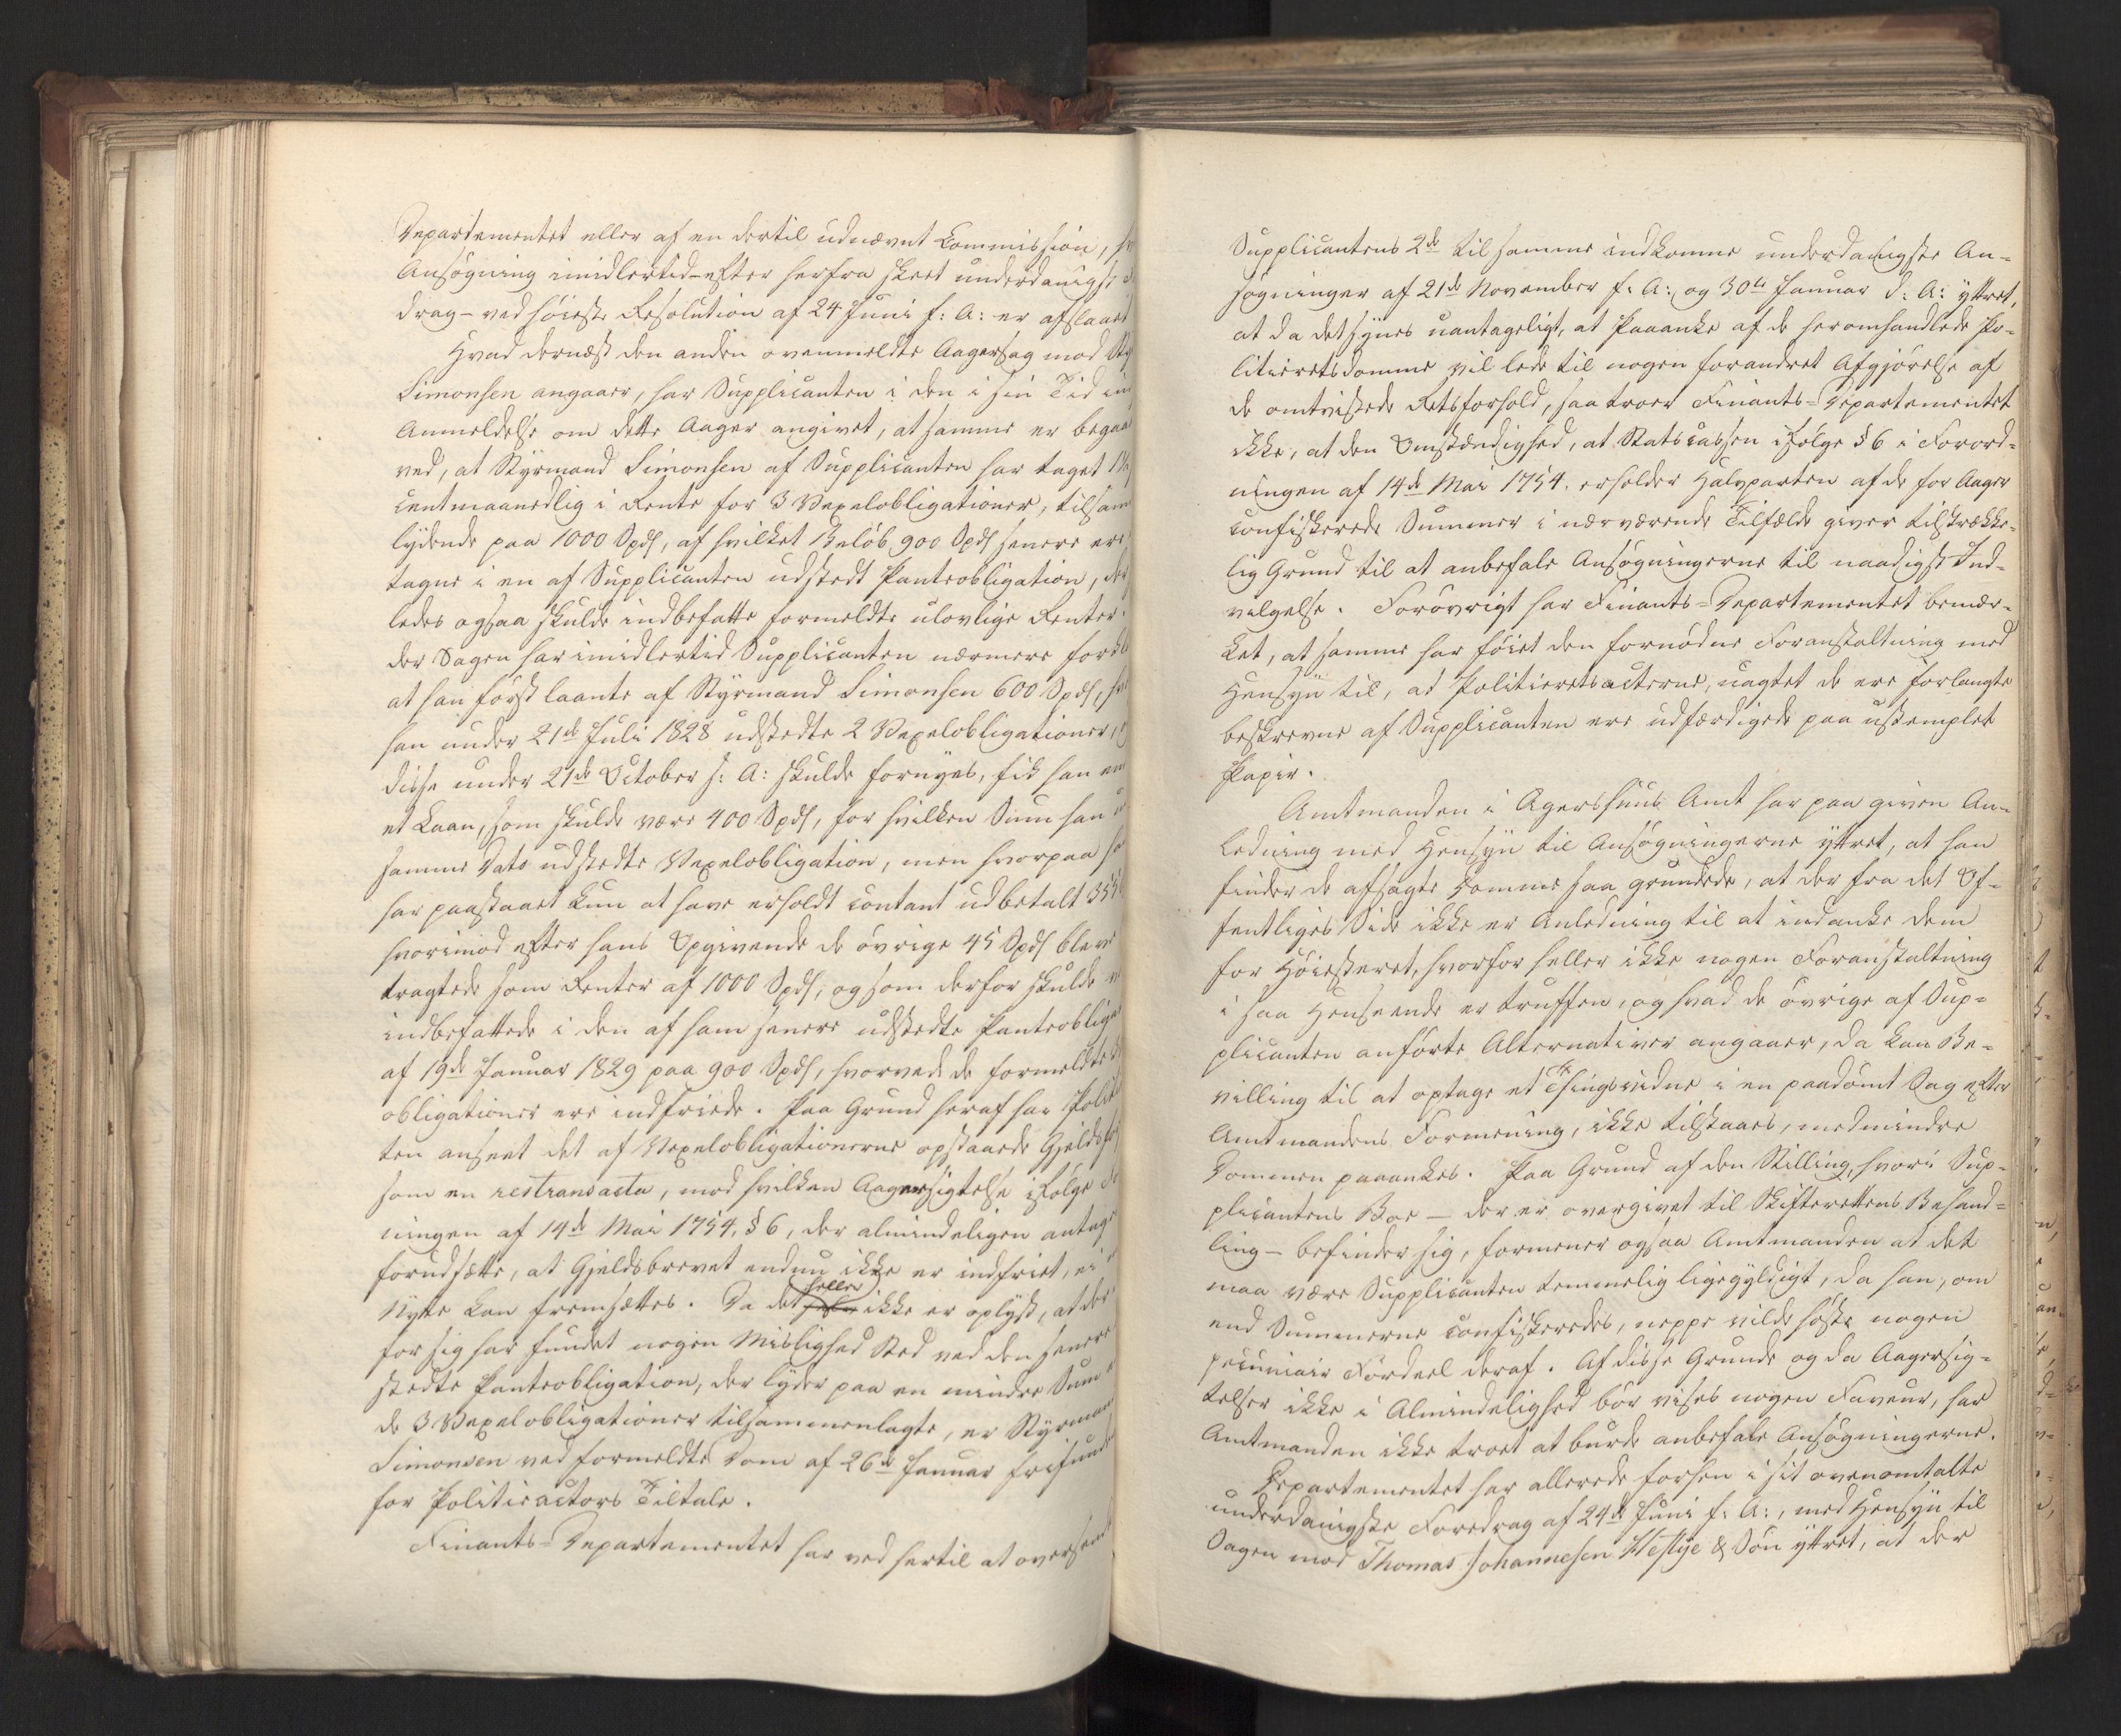 Departementet eller af en dertil udnævnt Commission,
Ansøgning imidlertid – efter herfra skeet underdanigst
drag – ved høieste Resolution af 24 Juni f: A: er afslaaet
Hvad dernæst den anden ovenmeldte Aagersag mod
Simonsen angaaer, har Supplicanten i den i sin Tid
Anmeldelse om dette Aager angivet, at samme er
ved, at Styrmand Simonsen af Supplicanten har taget
centmaanedlig i Rente for 3 Vexelobligationer,
lydende paa 1000 Spd, af hvilket Beløb 900 Spd senere
tagne i en af Supplicanten udstedt Panteobligation,
ledes ogsaa skulde indbefatte formeldte ulovlige Renter.
der Sagen har imidlertid Supplicanten nærmere
at han først laante af Styrmand Simonsen 600 Spd,
han under 21de Juli 1828 udstedte 2 Vexelobligationer,
disse under 21de October s: A: skulde fornyes, fik han
et Laan, som skulde være 400 Spd, for hvilken Sum han
samme Dato udstedte Vexelobligation, men hvorpaa
har paastaaet kun at have erholdt contant udbetalt
hvorimod efter hans Opgivende de øvrige 45 Spd bleve
tragtede som Renter af 1000 Spd, og som derfor skulde
indbefattede i den af ham senere udstedte
af 19de Januar 1829 paa 900 Spd, hvorved de formeldte
obligationer ere indfriede. Paa Grund heraf har
ten anseet det af Vexelobligationerne opstaaede
som en res transacta, mod hvilken Aagersigtelse ifølge
ningen af 14de Mai 1754, § 6, der almindeligen
forudsætte, at Gjeldsbrevet endnu ikke er indfriet, ei
Nytte kan fremsættes. Da det heller ikke er oplyst, at der
for sig har fundet nogen Mislighed Sted ved den senere
stedte Panteobligation, der lyder paa en mindre Sum
de 3 Vexelobligationer tilsammenlagte, er
Simonsen ved formeldte Dom af 26de Januar
for Politieactors Tiltale.
Finants-Departementet har ved hertil at
Supplicantens 2de til samme indkomne underdanigste An-
søgninger af 21de November f: A:, og 30te Januar d: A: yttret,
at da det synes uantageligt, at Paaanke af de heromhandlede Po-
litieretsdomme vil lede til nogen forandret Afgjørelse af
de omtvistede Retsforhold, saa troer Finants-Departementet
ikke, at den Omstændighed, at Statscassen ifølge § 6 i Forord-
ningen af 14de Mai 1754. erholder Halvparten af de for Aager
confiskerede Summer i nærværende Tilfælde giver tilstrække-
lig Grund til at anbefale Ansøgningerne til naadigst Ind-
vilgelse. Forøvrigt har Finants-Departementet bemær-
ket, at samme har føiet den fornødne Foranstaltning med
Hensyn til, at Politieretsacterne, uagtet de ere forlangte
beskrevne af Supplicanten ere udfærdigede paa ustemplet
Papir.
Amtmanden i Agershuus Amt har paa given An-
ledning med Hensyn til Ansøgningerne yttret, at han
finder de afsagte Domme saa grundede, at der fra det Of-
fentliges Side ikke er Anledning til at indanke dem
for Høiesteret, hvorfor heller ikke nogen Foranstaltning
i saa Henseende er truffen, og hvad de øvrige af Sup-
plicanten anførte Alternativer angaaer, da kan Be-
villing til at optage et Thingsvidne i en paadømt Sag efter
Amtmandens Formening, ikke tilstaaes, medmindre
Dommen paaankes. Paa Grund af den Stilling, hvori Sup-
plicantens Boe – der er overgivet til Skifterettens Behand-
ling – befinder sig, formener ogsaa Amtmanden at det
maa være Supplicanten temmelig ligegyldigt, da han, om
end Summerne confiskeredes, neppe vilde høste nogen
pecuniair Fordeel deraf. Af disse Grunde og da Aagersig-
telser ikke i Almindelighed bør vises nogen Faveur, har
Amtmanden ikke troet at burde anbefale Ansøgningerne.
Departementet har allerede forhen i sit ovenomtalte
underdanigste Foredrag af 24de Juni f: A:, med Hensyn til
Sagen mod Thomas Johannesen Heftye & Søn yttret, at der